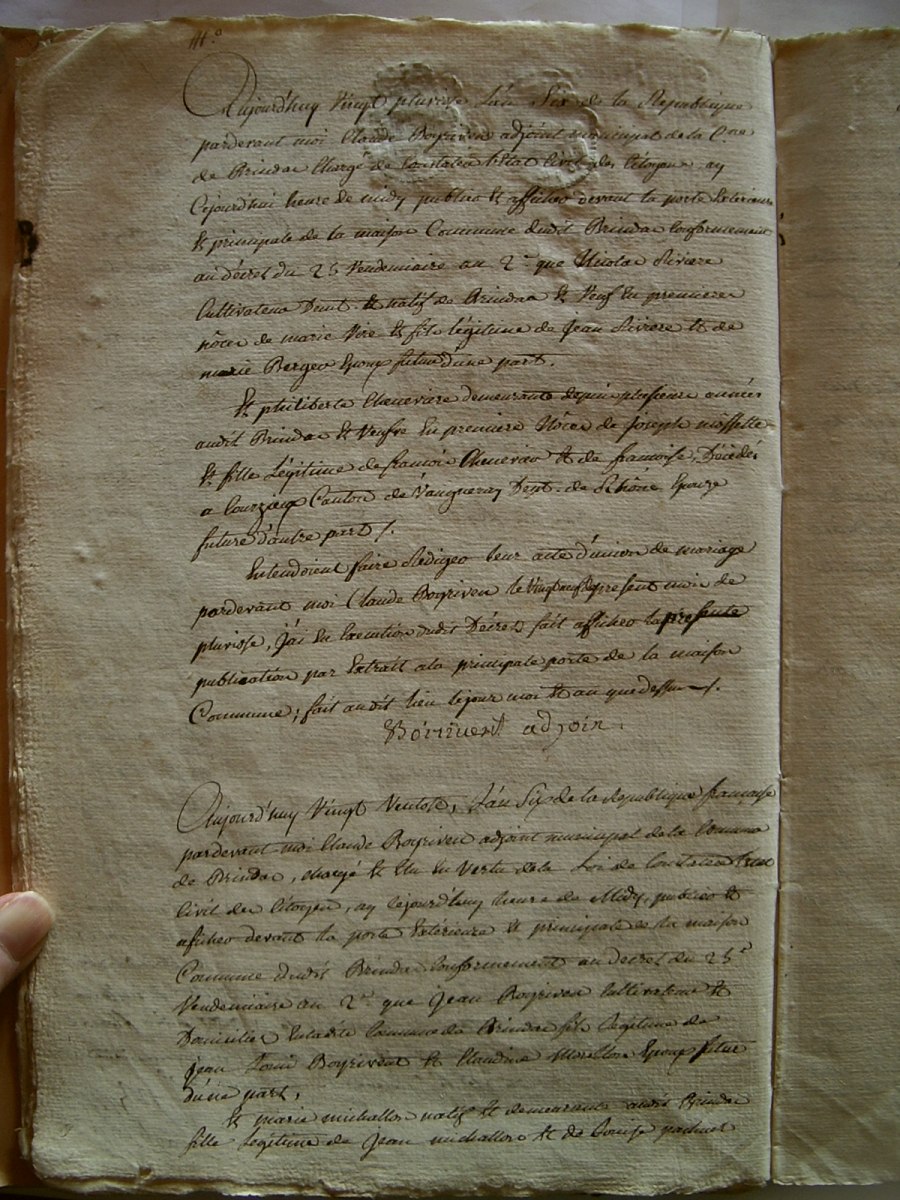 Aujourd'huy Vingt pluviose L'an Six de la Republique
pardevant moi Claude Boyriven adjoint municipal de la C.ne
de Brindas Chargé de Constater l'Etat Civil des Citoyens ay
Cejourd'hui heure de midy publié et affiché devant la porte Exterieure
et principale de la maison Commune dudit Brindas Conformement
au décret du 25 Vendemiaire an 2.me que Nicolas Riviere
Cultivateur et natif de Brindas et Veuf En premieres
nôces de marie et fils légitime de Jean Riviere et de
marie Berger Epoux futur d'une part.
Et philiberte Cheneviere demeurante depuis plusieurs années
audit Brindas et Veufve En premiere Nôces de Joseph
et fille Légitime de françois et de françoise Décédés
a Courzieux Canton de Vaugneray de Rhône Epouse
future d'autre part /.
Entendoient faire Rediger leur acte d'union de mariage
pardevant moi Claude Boyriven le present mois de
pluviose, J'ai En Execution dudit Décret fait afficher la presente
publication par Extrait a la principale porte de la maison
Commune; fait audit lieu le jour mois et an que dessus /.
adjoin
Aujourd'huy Vingt Ventose, L'an Six de la Republique française
pardevant moi Claude Boyriven adjoint municipal de la Commune
de Brindas, chargé et En Vertu de la Loi de Constater
Civil des Citoyens, ay Cejourd'huy heure de Midy, publié et
affiché devant la porte Extérieure et principale de la maison
Commune dudit Brindas Conformement au decret du 25
Vendemiaire an 2 que Jean Boyriven Cultivateur et
Domicilié En ladite Commune de Brindas fils Légitime de
Jean Louis Boyrivent et Claudine Epoux futur
d'une part,
Et marie michallon natif et demeurant audit Brindas
fille Legitime de Jean michallon et de Louise